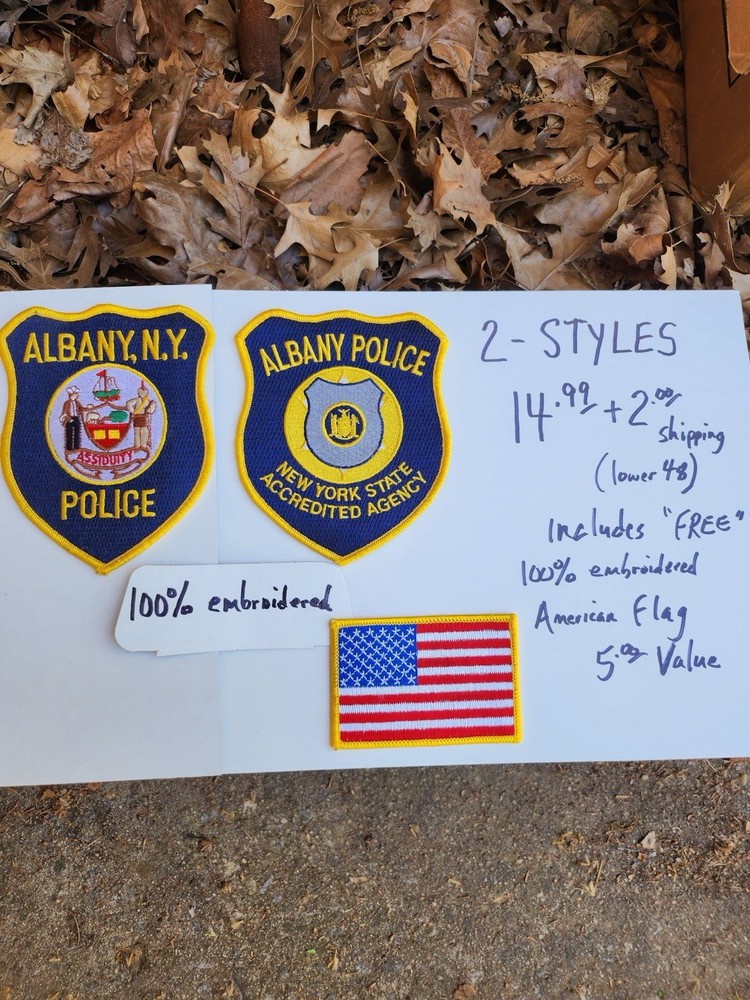 ALBANY, N.Y.
ASSIDUITY
POLICE
ALBANY POLICE
NEW YORK STATE
ACCREDITED AGENCY
2 - STYLES
14.99 + 2.00
shipping
(lower 48)
Includes "FREE"
100% embroidered
American Flag
5.00 Value
100% embroidered